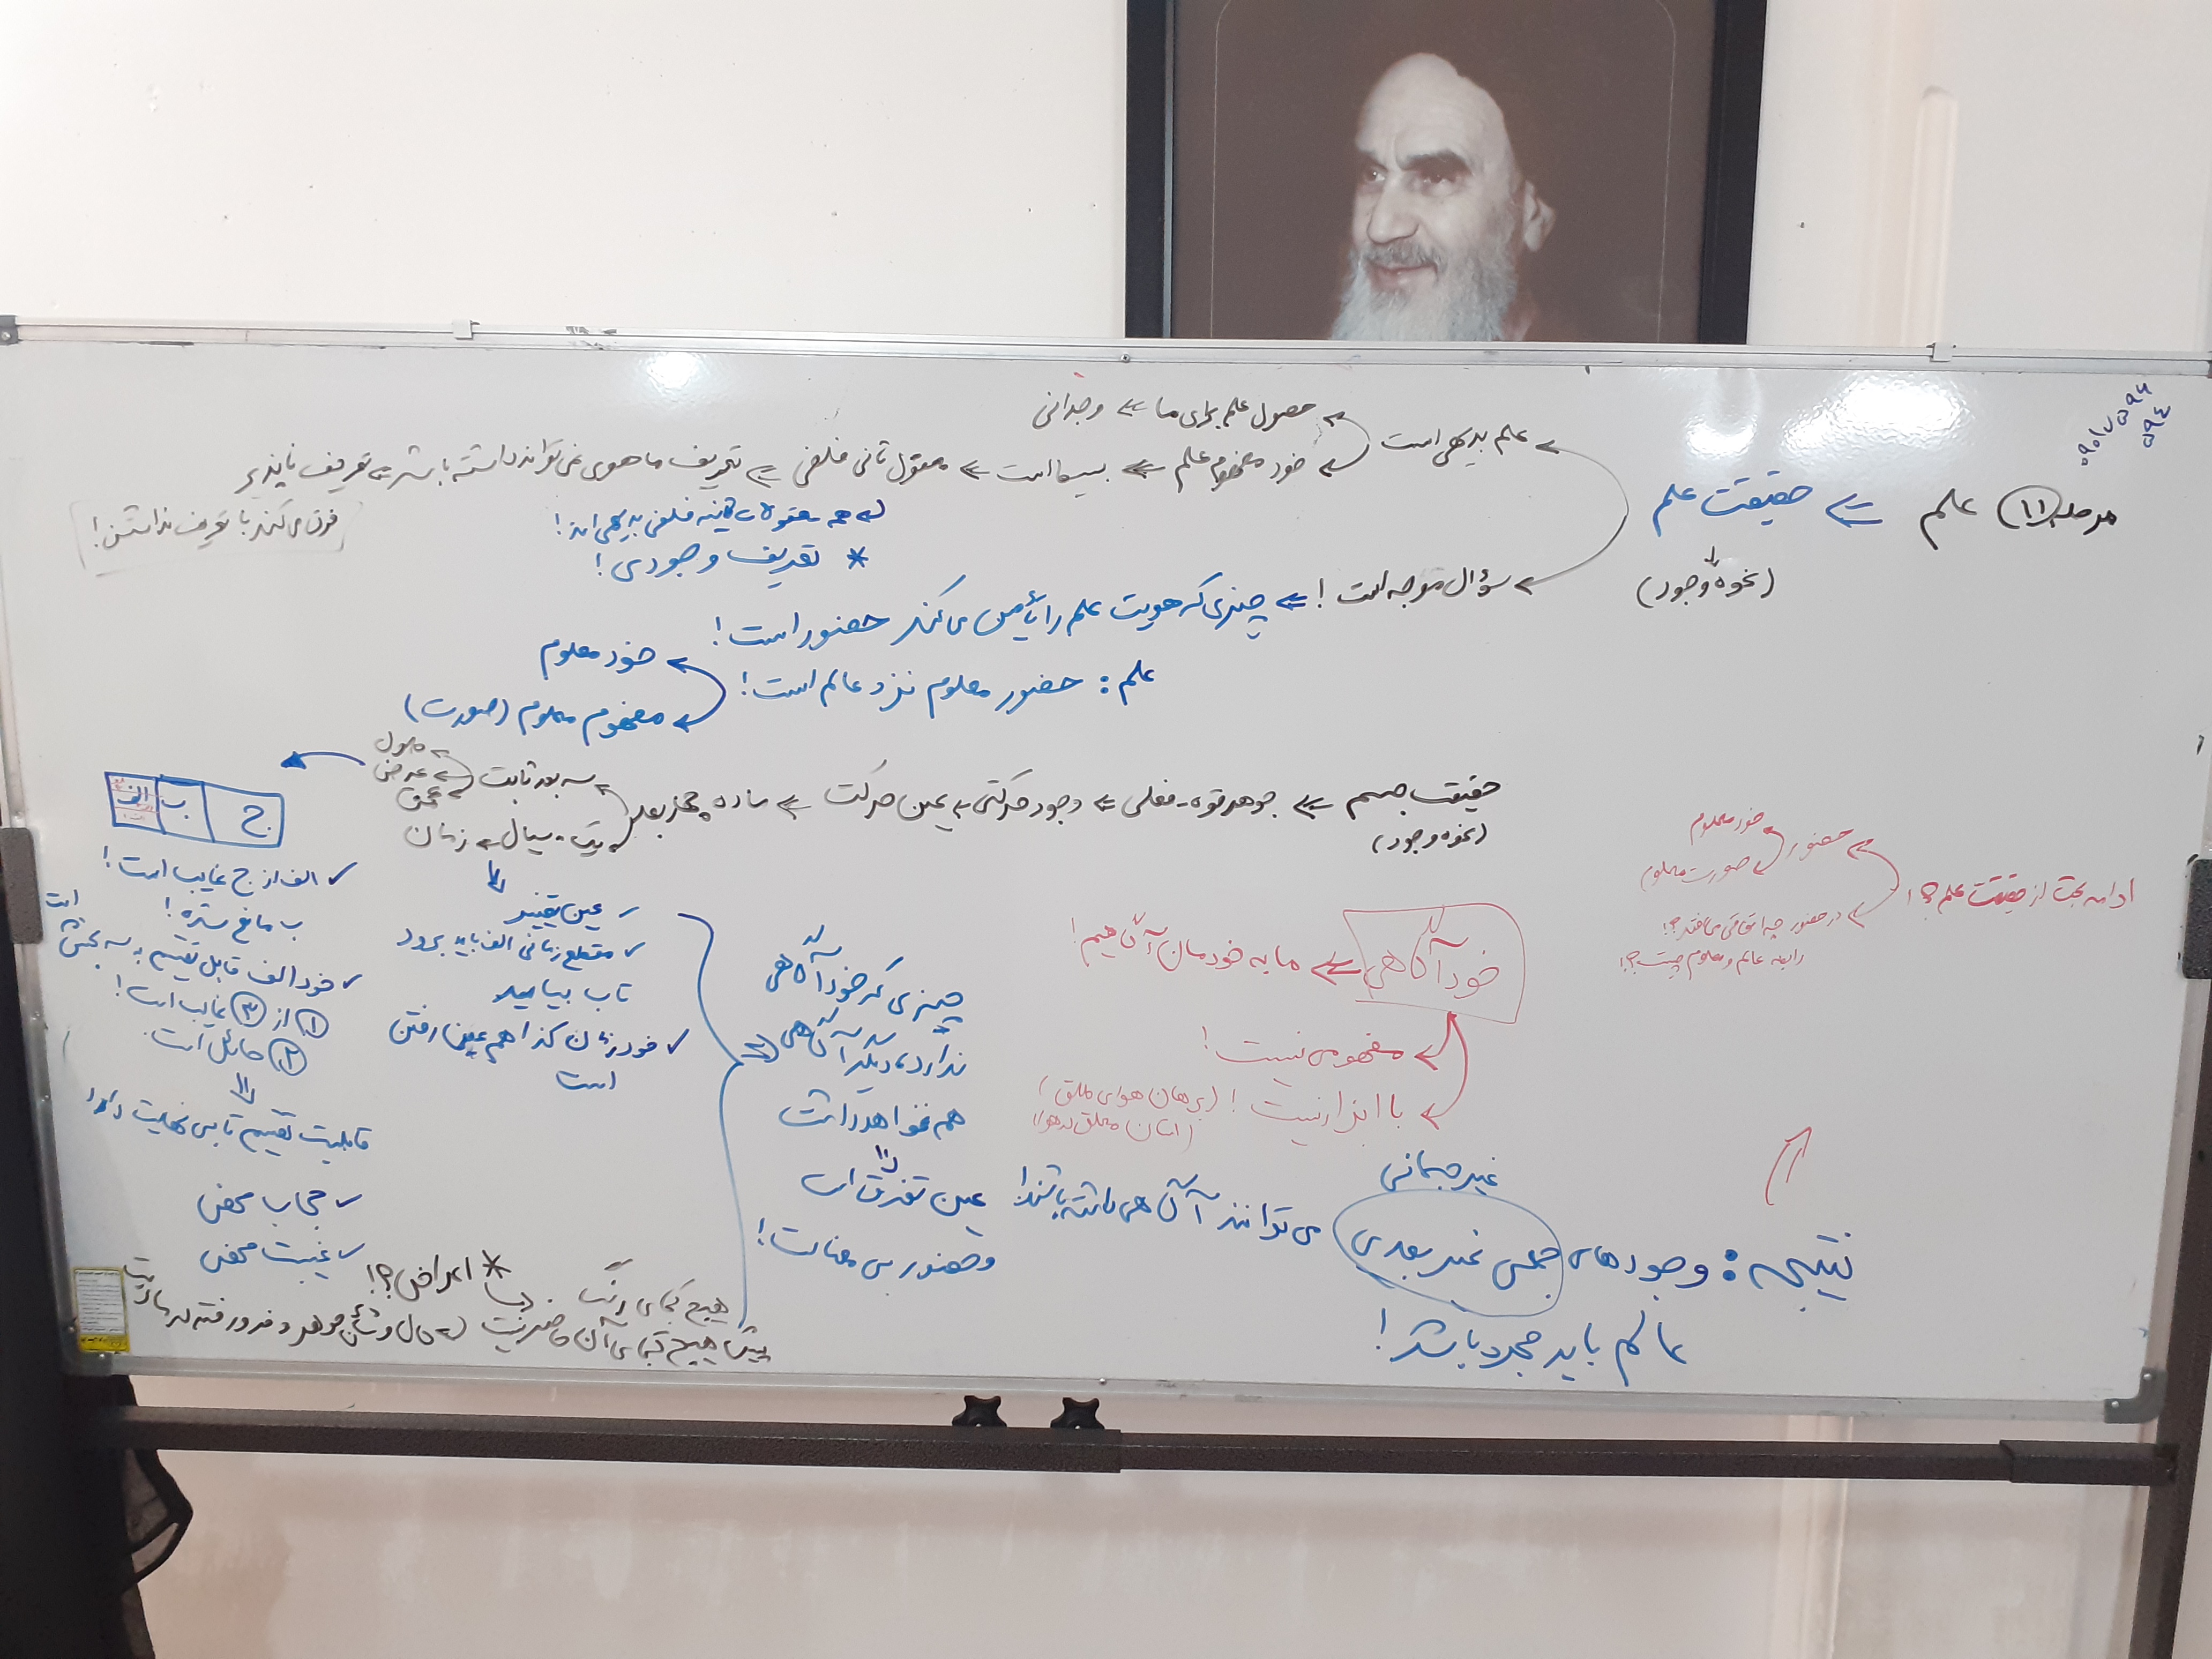 حصول علم برای ما ⇐ وجدانی
علم بدیهی است
خود مفهوم علم ⇐ بسیط است ⇐ معقول ثانی فلسفی ⇐ تعریف ماهوی نمی‌تواند داشته باشد ⇐ تعریف ناپذیر
فرق می‌کند با تعریف نداشتن!
مرحله ۱۱ علم ⇐ حقیقت علم
(نحوه وجود)
همه معقولات ثانیه فلسفی بدیهی اند!
* تعریف وجودی!
سؤال موجه است! ⇐ چیزی که هویت علم را تأمین می‌کند حضور است!
علم: حضور معلوم نزد عالم است!
خود معلوم
مفهوم معلوم (صورت)
حقیقت جسم ⇐ جوهر قوه-فعلی ⇐ وجود حرکتی ⇐ عین حرکت ⇐ ساده چهار بعد
(نحوه وجود)
سه بعد ثابت
طول
عرض
عمق
یک - سیال ⇐ زمان
ج ب الف
✓ الف از ج غایب است!
ب مانع شده!
✓ خود الف قابل تقسیم به سه بخش است
۱ از ۳ غایب است!
۲ حائل است.
قابلیت تقسیم تا بی نهایت دارد
✓ حجاب محض
✓ غیبت محض
✓ عین تغییر
✓ مقطع زمانی الف باید برود
تا ب بیاید
✓ خود زمان کذا هم عین رفتن
است
چیزی که خودآگاهی
ندارد، دیگرآگاهی
هم نخواهد داشت
عین تفرق است
و حضور بی معناست!
ادامه بحث از حقیقت علم؟!
حضور
خود معلوم
صورت معلوم
در حضور چه اتفاقی می‌افتد؟!
رابطه عالم و معلوم چیست؟!
خودآگاهی ⇐ ما به خودمان آگاهیم!
مفهومی نیست!
با ابزار نیست! (برهان هوای طلق)
(انسان معلق در هوا)
غیر جسمانی
نتیجه: وجودهای جمعی غیر بعدی می‌توانند آگاهی داشته باشند!
عالم باید مجرد باشد!
* اعراض؟!
هیچ کجای
پیش هیچ کجای آن حاضر نیست